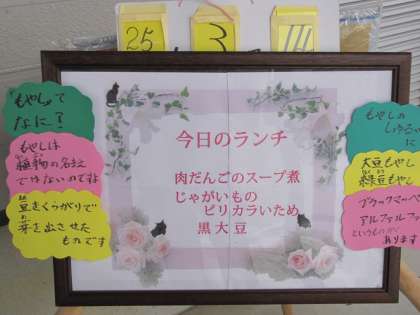 25
3
もやしって
なに?
もやしは
植物の名まえ
ではないのですよ
豆をくらがりで
芽を出させた
ものです
今日のランチ
肉だんごのスープ煮
じゃがいもの
ピリカラいため
黒大豆
もやしの
しゅるい
に
大豆もやし
緑豆もやし
ブラックマッペ
アルファルファ
というものが
あります